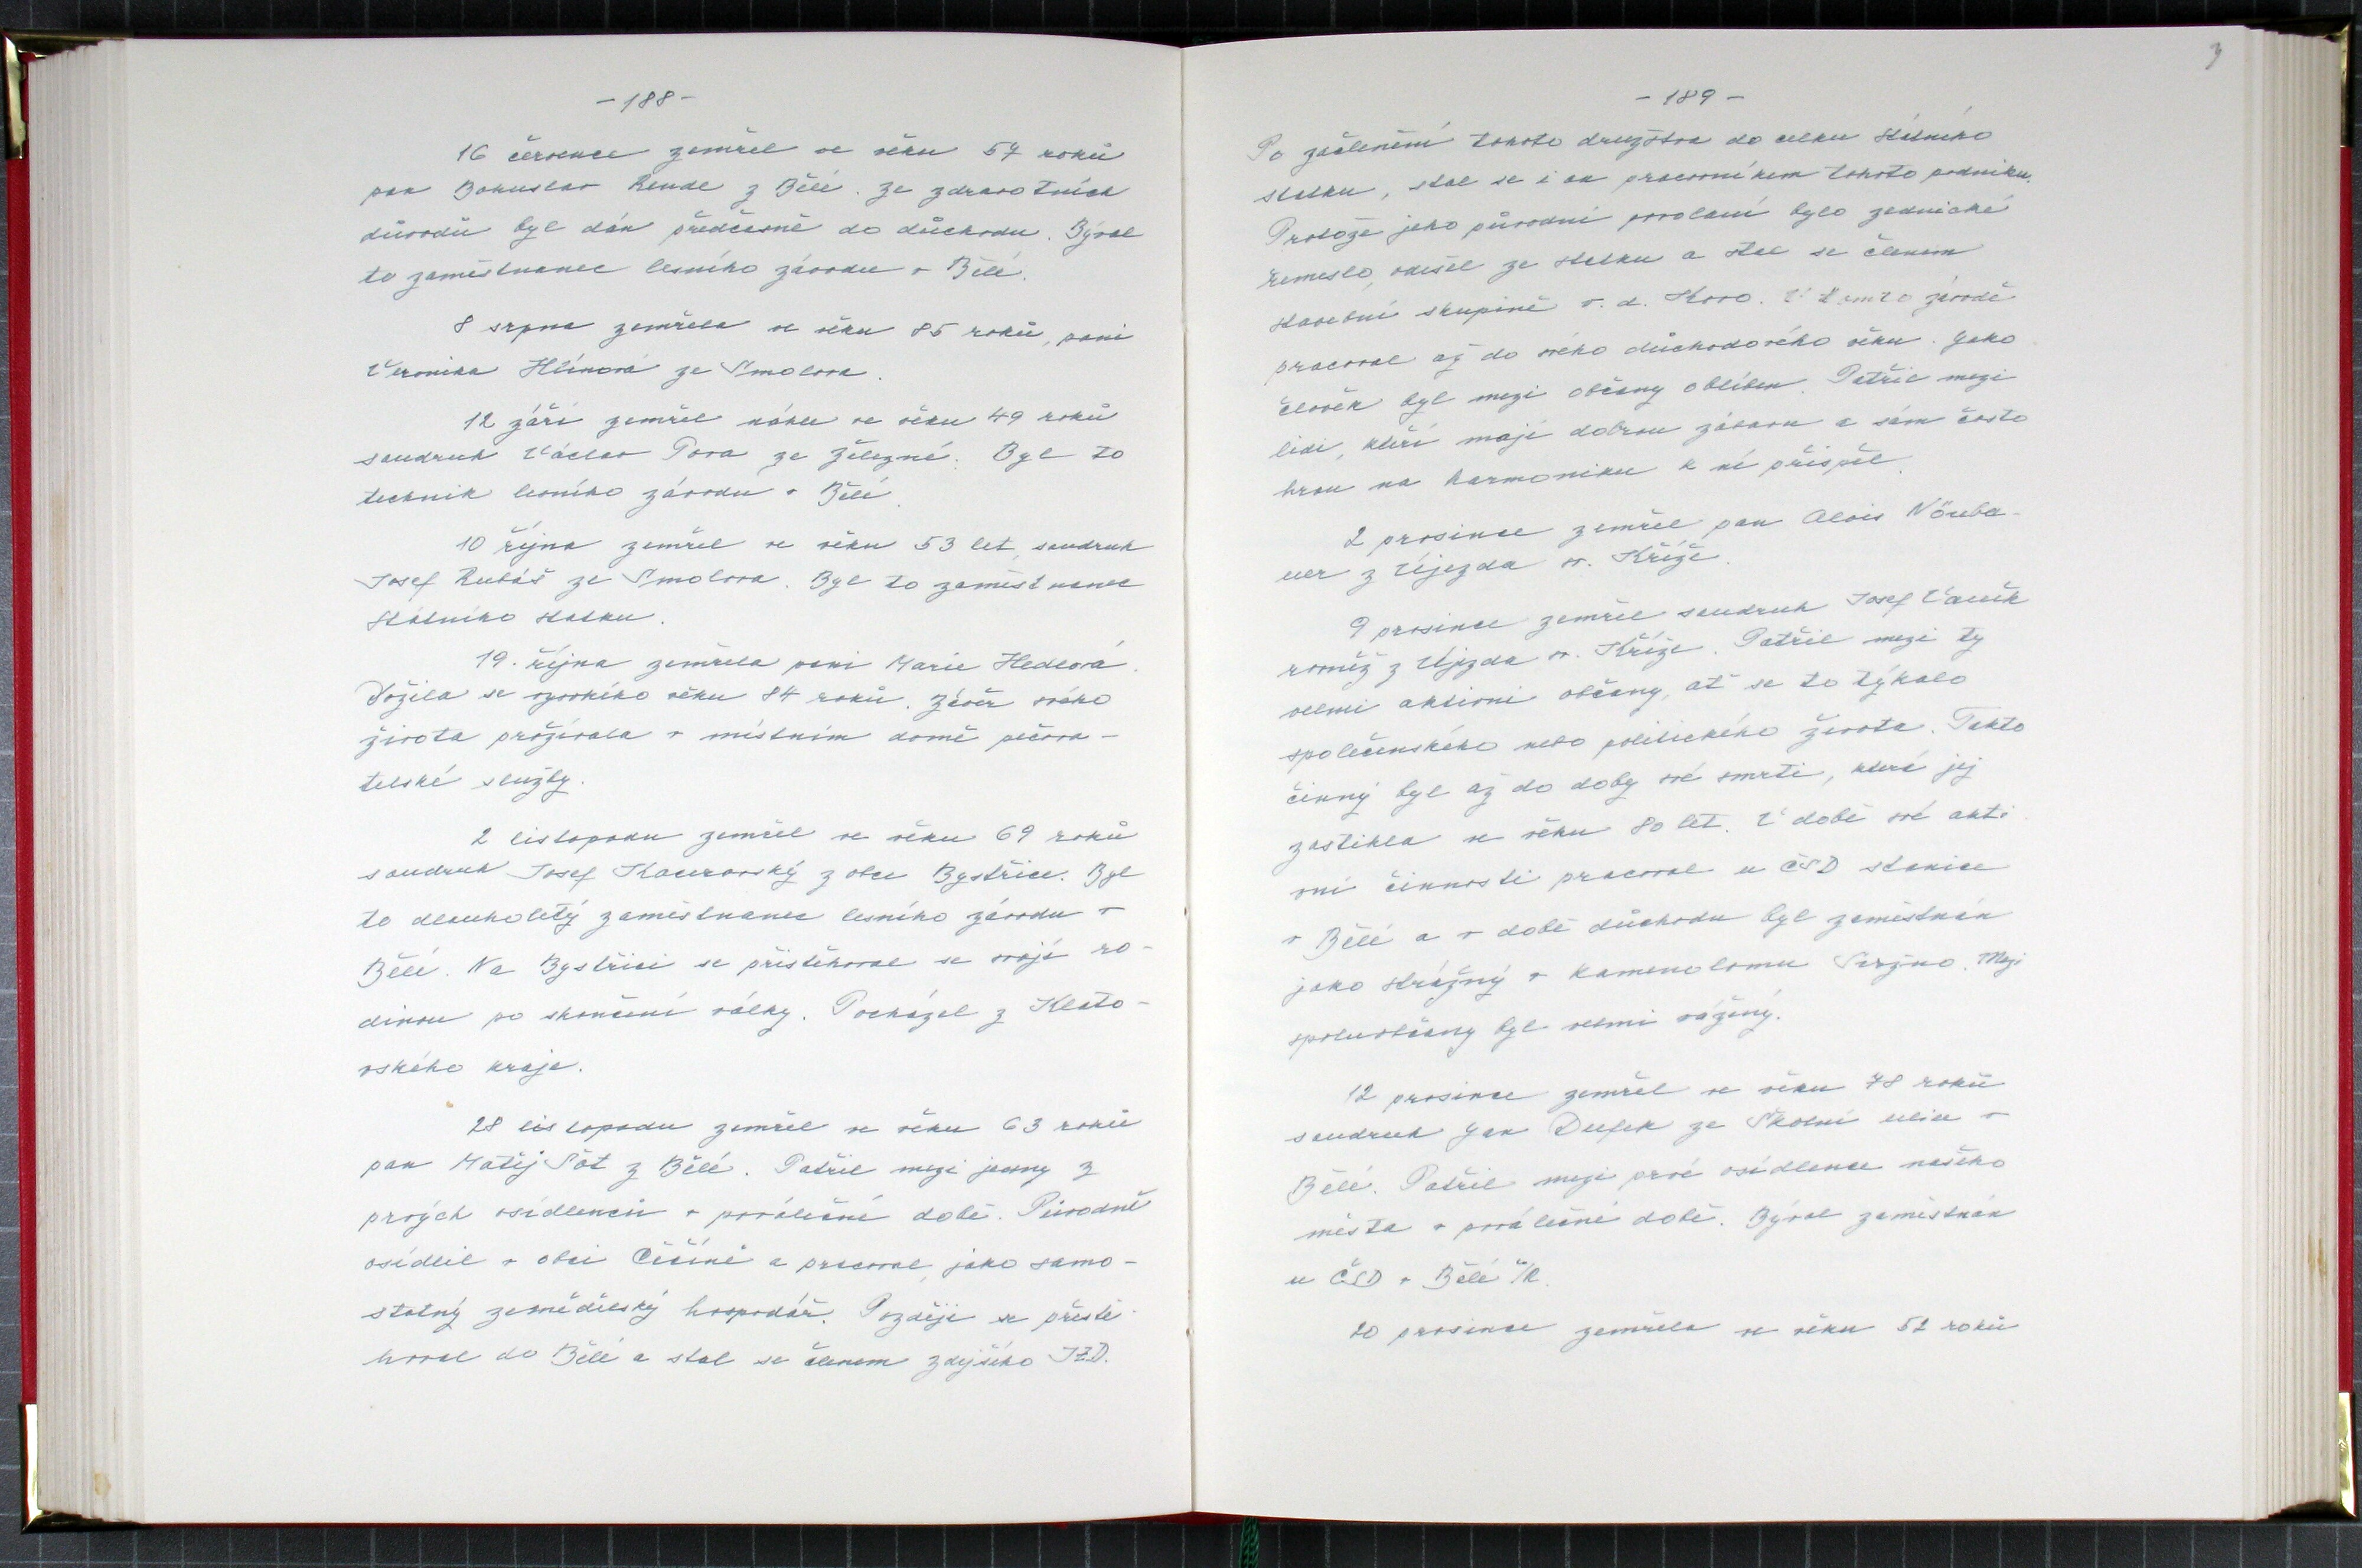 - 188 -
16 července zemřel ve věku 57 roků
pan Bohuslav Rende z Bělé. Ze zdravotních
důvodů byl dán předčasně do důchodu. Býval
to zaměstnanec lesního závodu v Bělé.
8 srpna zemřela ve věku 85 roků, paní
Veronika Hlinová ze Smolova.
12 září zemřel náhle ve věku 49 roků
soudruh Václav Pova ze Železné. Byl to
technik lesního závodu v Bělé.
10 října zemřel ve věku 53 let, soudruh
Josef Rubáš ze Smolova. Byl to zaměstnanec
Státního statku.
19. října zemřela paní Marie Hedlová.
Dožila se vysokého věku 84 roků. Závěr svého
života prožívala v místním domě pečova-
telské služby.
2 listopadu zemřel ve věku 69 roků
soudruh Josef Kocurovský z obce Bystřice. Byl
to dlouholetý zaměstnanec lesního závodu v
Bělé. Na Bystřici se přistěhoval se svojí ro-
dinou po skončení války. Pocházel z Klato-
vského kraje.
28 listopadu zemřel ve věku 63 roků
pan Matěj Šôt z Bělé. Patřil mezi jedny z
prvých osídlenců v poválečné době. Původně
osídlil v obci Čečíně a pracoval, jako samo-
statný zemědělský hospodář. Později se přestě-
hoval do Bělé a stal se členem zdejšího JZD.
- 189 -
Po začlenění tohoto družstva do celku Státního
statku, stal se i on pracovníkem tohoto podniku.
Protože jeho původní povolání bylo zednické
řemeslo, odešel ze statku a stal se členem
stavební skupině v. d. Kovo. V tomto závodě
pracoval až do svého důchodového věku. Jako
člověk byl mezi občany oblíben. Patřil mezi
lidi, kteří mají dobrou zábavu a sám často
hrou na harmoniku k ní přispěl.
2 prosince zemřel pan Alois Nöuba-
uer z Újezda sv. Kříže.
9 prosince zemřel soudruh Josef Vaněk
rovněž z Újezda sv. Kříže. Patřil mezi ty
velmi aktivní občany, ať se to týkalo
společenského nebo politického života. Takto
činný byl až do doby své smrti, která jej
zastihla ve věku 80 let. V době své akti
vní činnosti pracoval u ČSD stanice
v Bělé a v době důchodu byl zaměstnán
jako strážný v kamenolomu Svržno. Mezi
spoluobčany byl velmi vážený.
12 prosince zemřel ve věku 78 roků
soudruh Jan Dufek ze Školní ulice v
Bělé. Patřil mezi prvé osídlence našeho
města v poválečné době. Býval zaměstnán
u ČSD v Bělé n/R.
20 prosince zemřela ve věku 52 roků